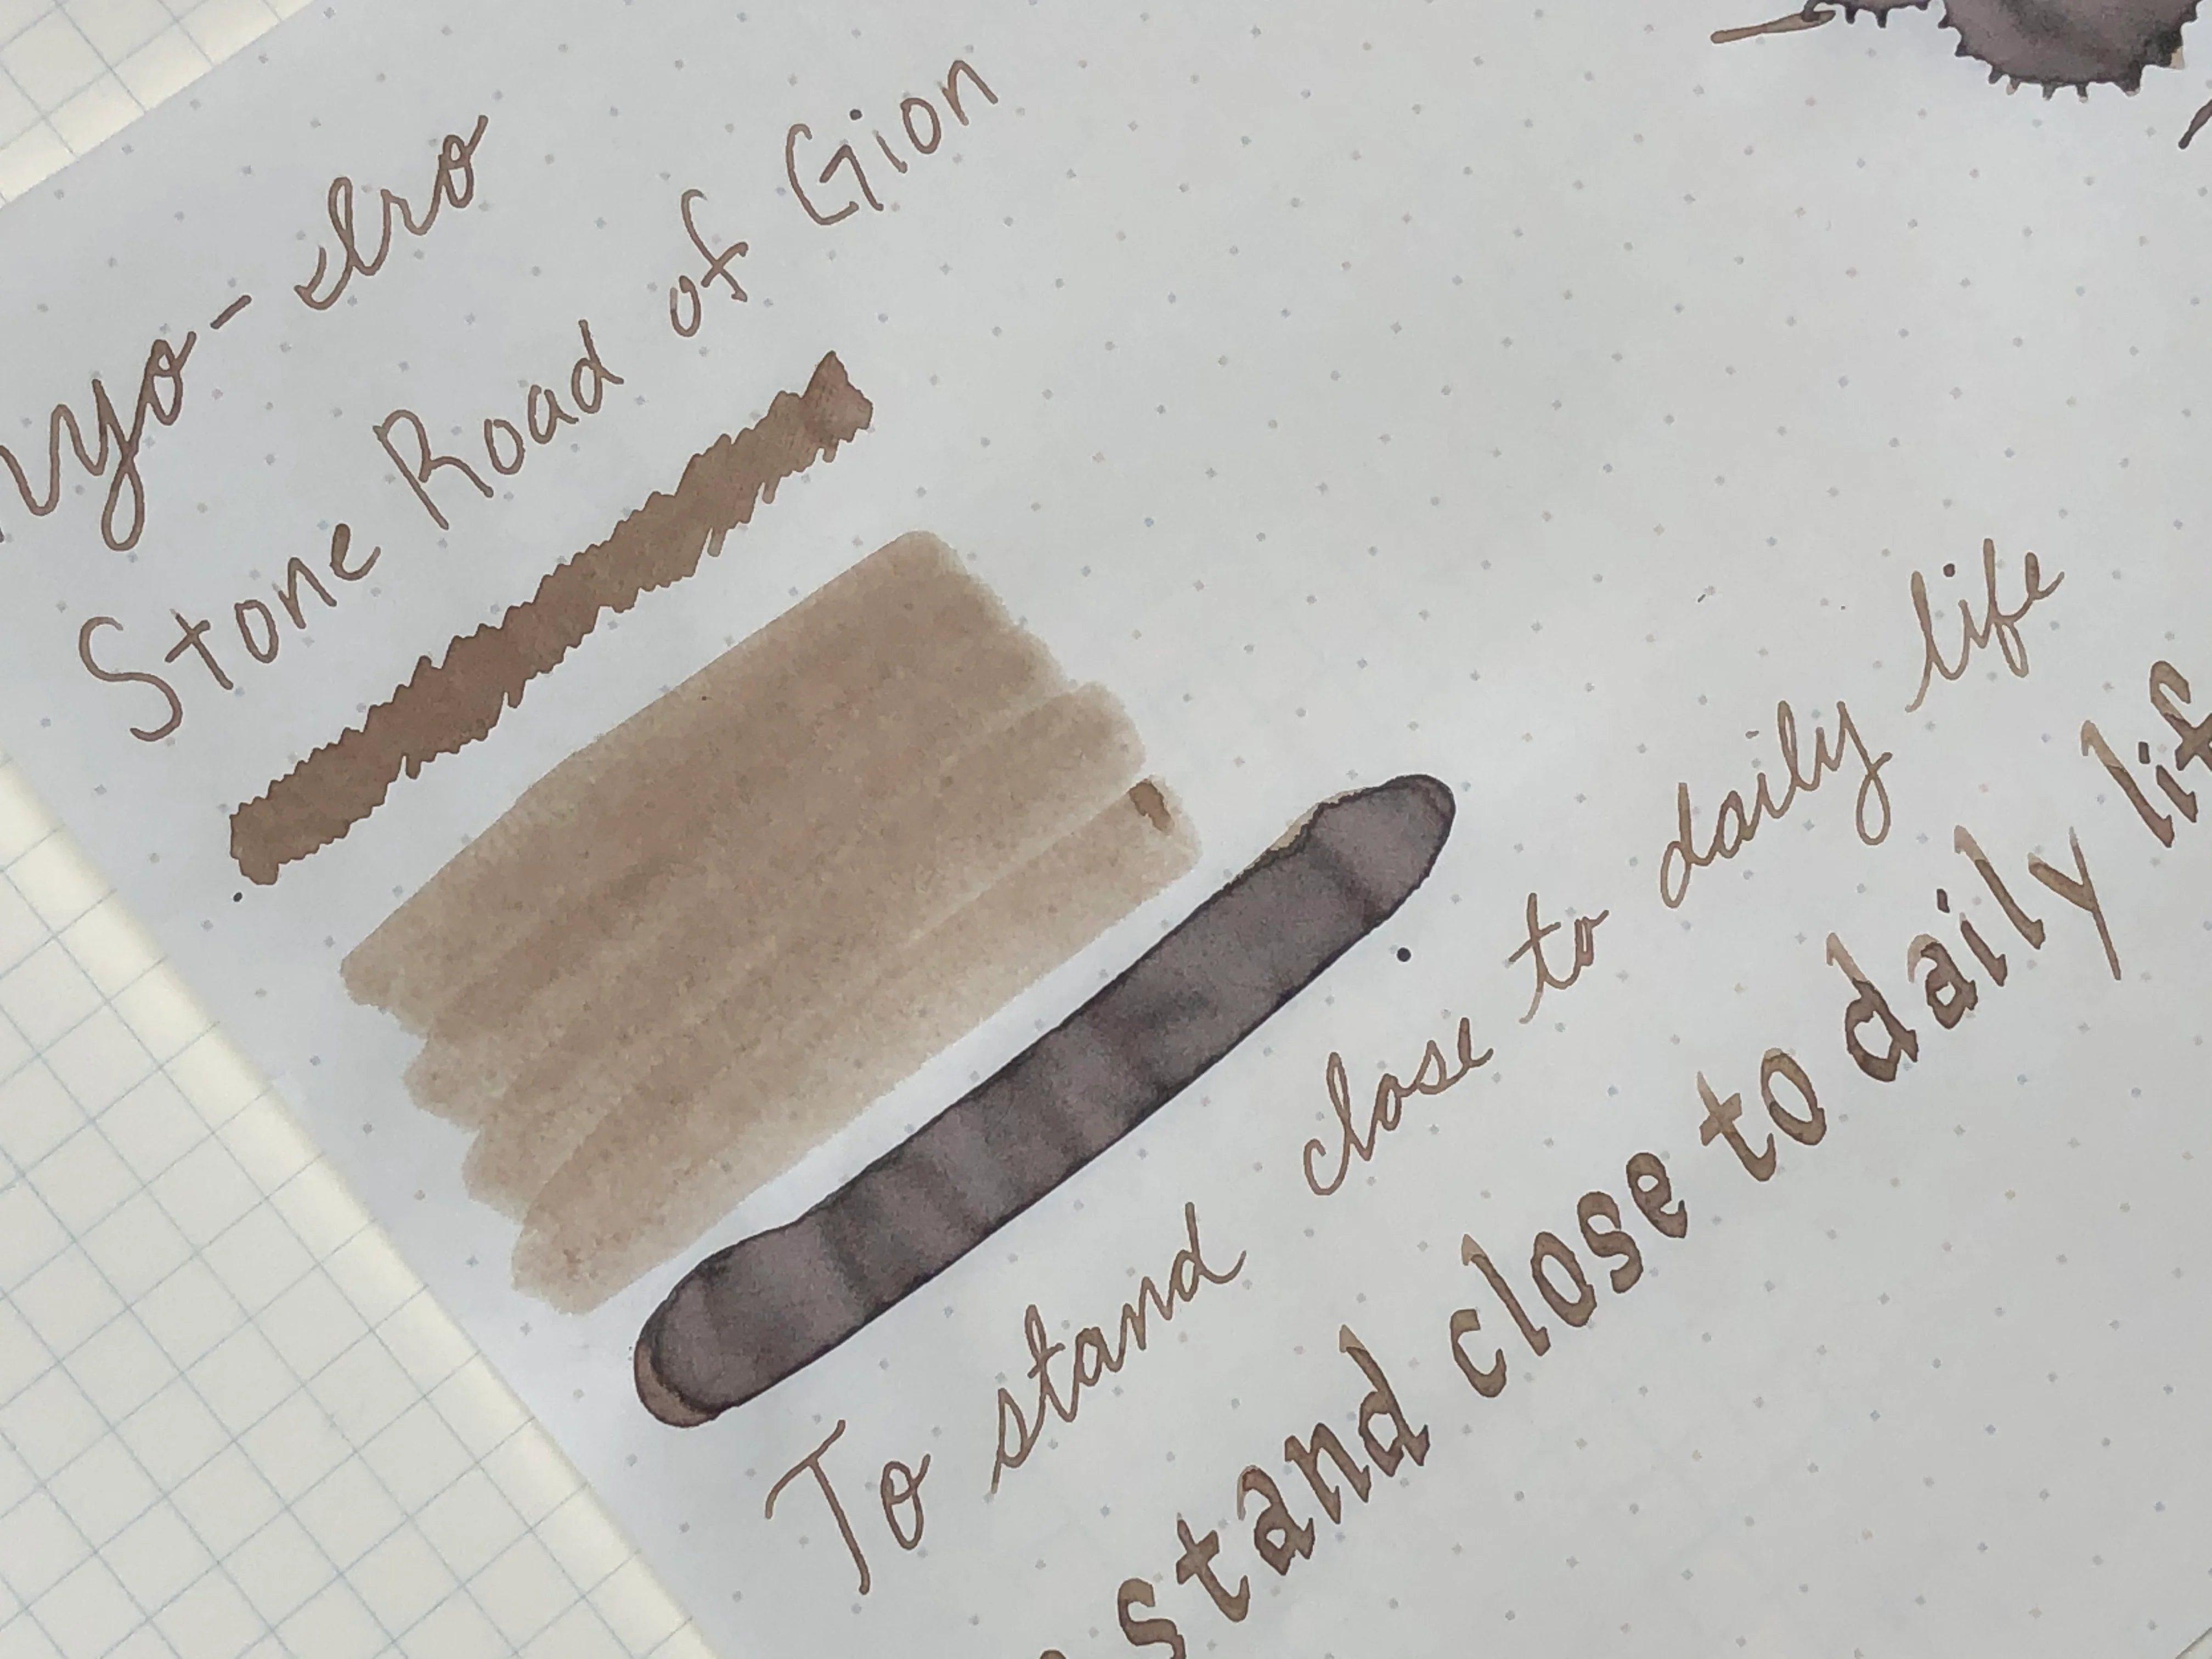 Kyo-iro
Stone Road of Gion
To stand close to daily life
stand close to daily lif